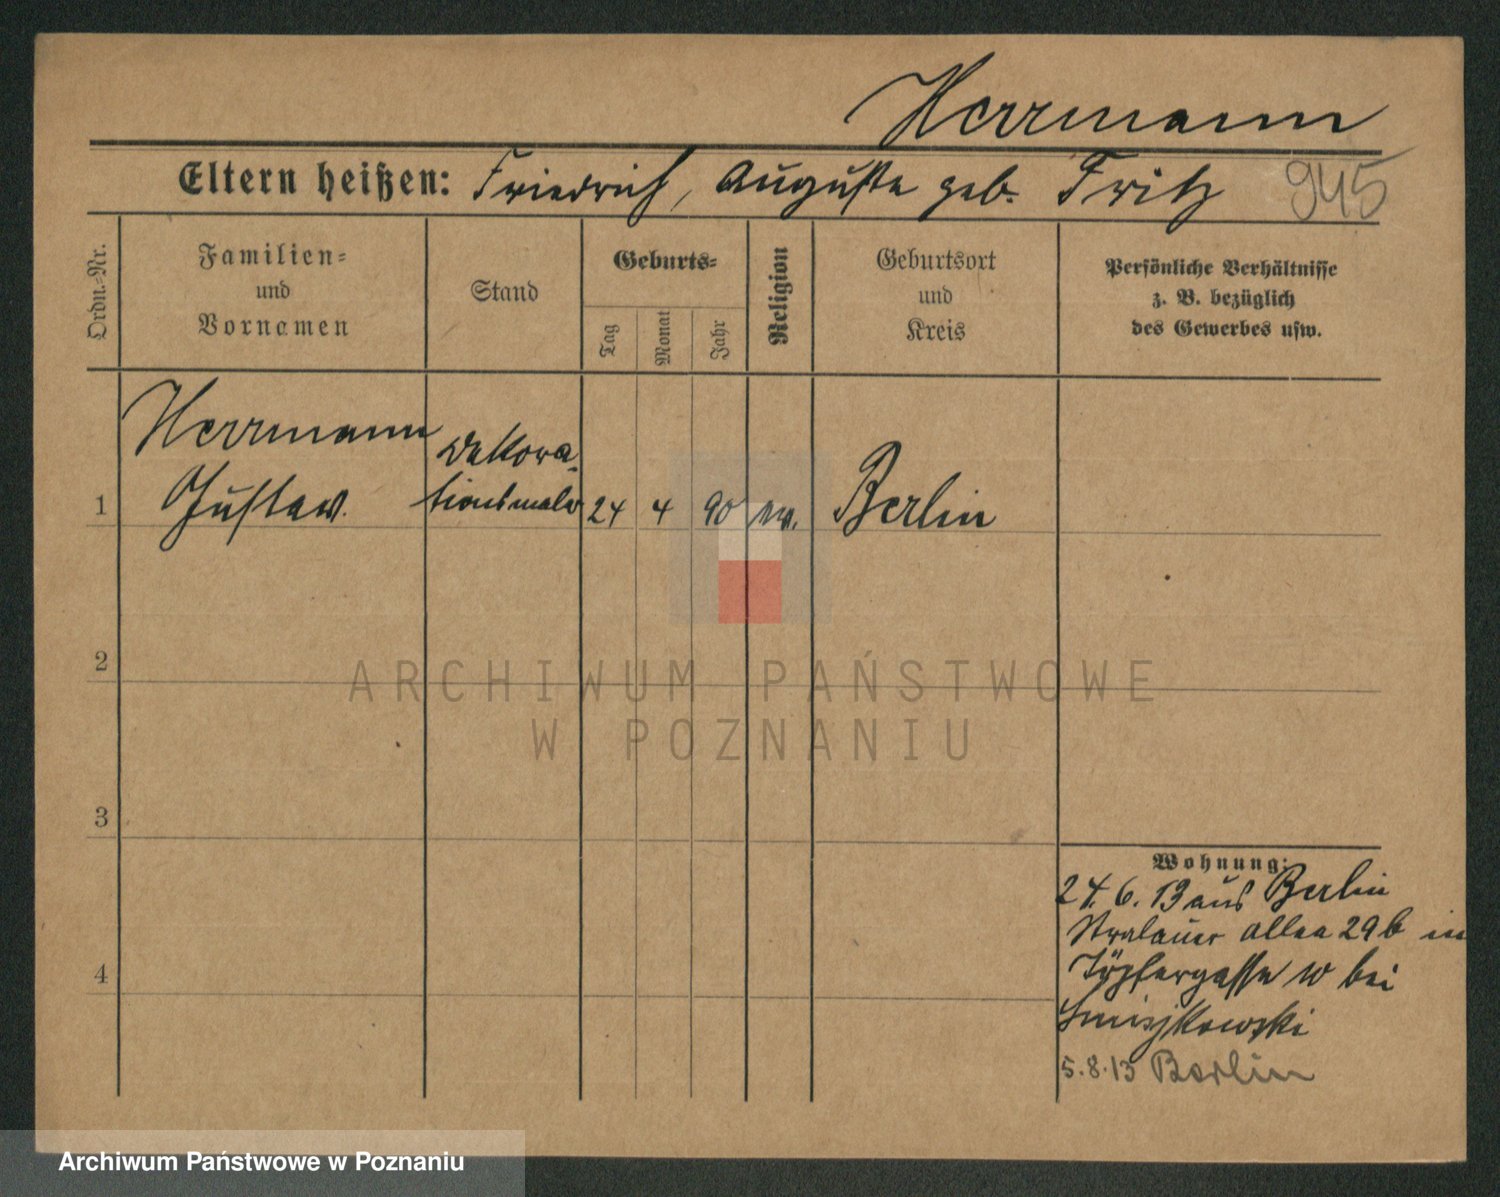 Herrmann
Eltern heißen: Friedrich, Auguste geb. Fritz 945
Ordn.-Nr.
Familien-
und
Vornamen
Stand
Geburts-
Tag
Monat
Jahr
Religion
Geburtsort
und
Kreis
Persönliche Verhältnisse
z. B. bezüglich
des Gewerbes usw.
Herrmann
Gustav.
Dekora-
tionsmaler
1
24
4
90
ev.
Berlin
2
3
4
Wohnung:
24. 6. 13 aus Berlin
Stralauer Allee 29b in
Töpfergasse 10 bei
5.8.13 Berlin
ARCHIWUM PAŃSTWOWE
W POZNANIU
Archiwum Państwowe w Poznaniu